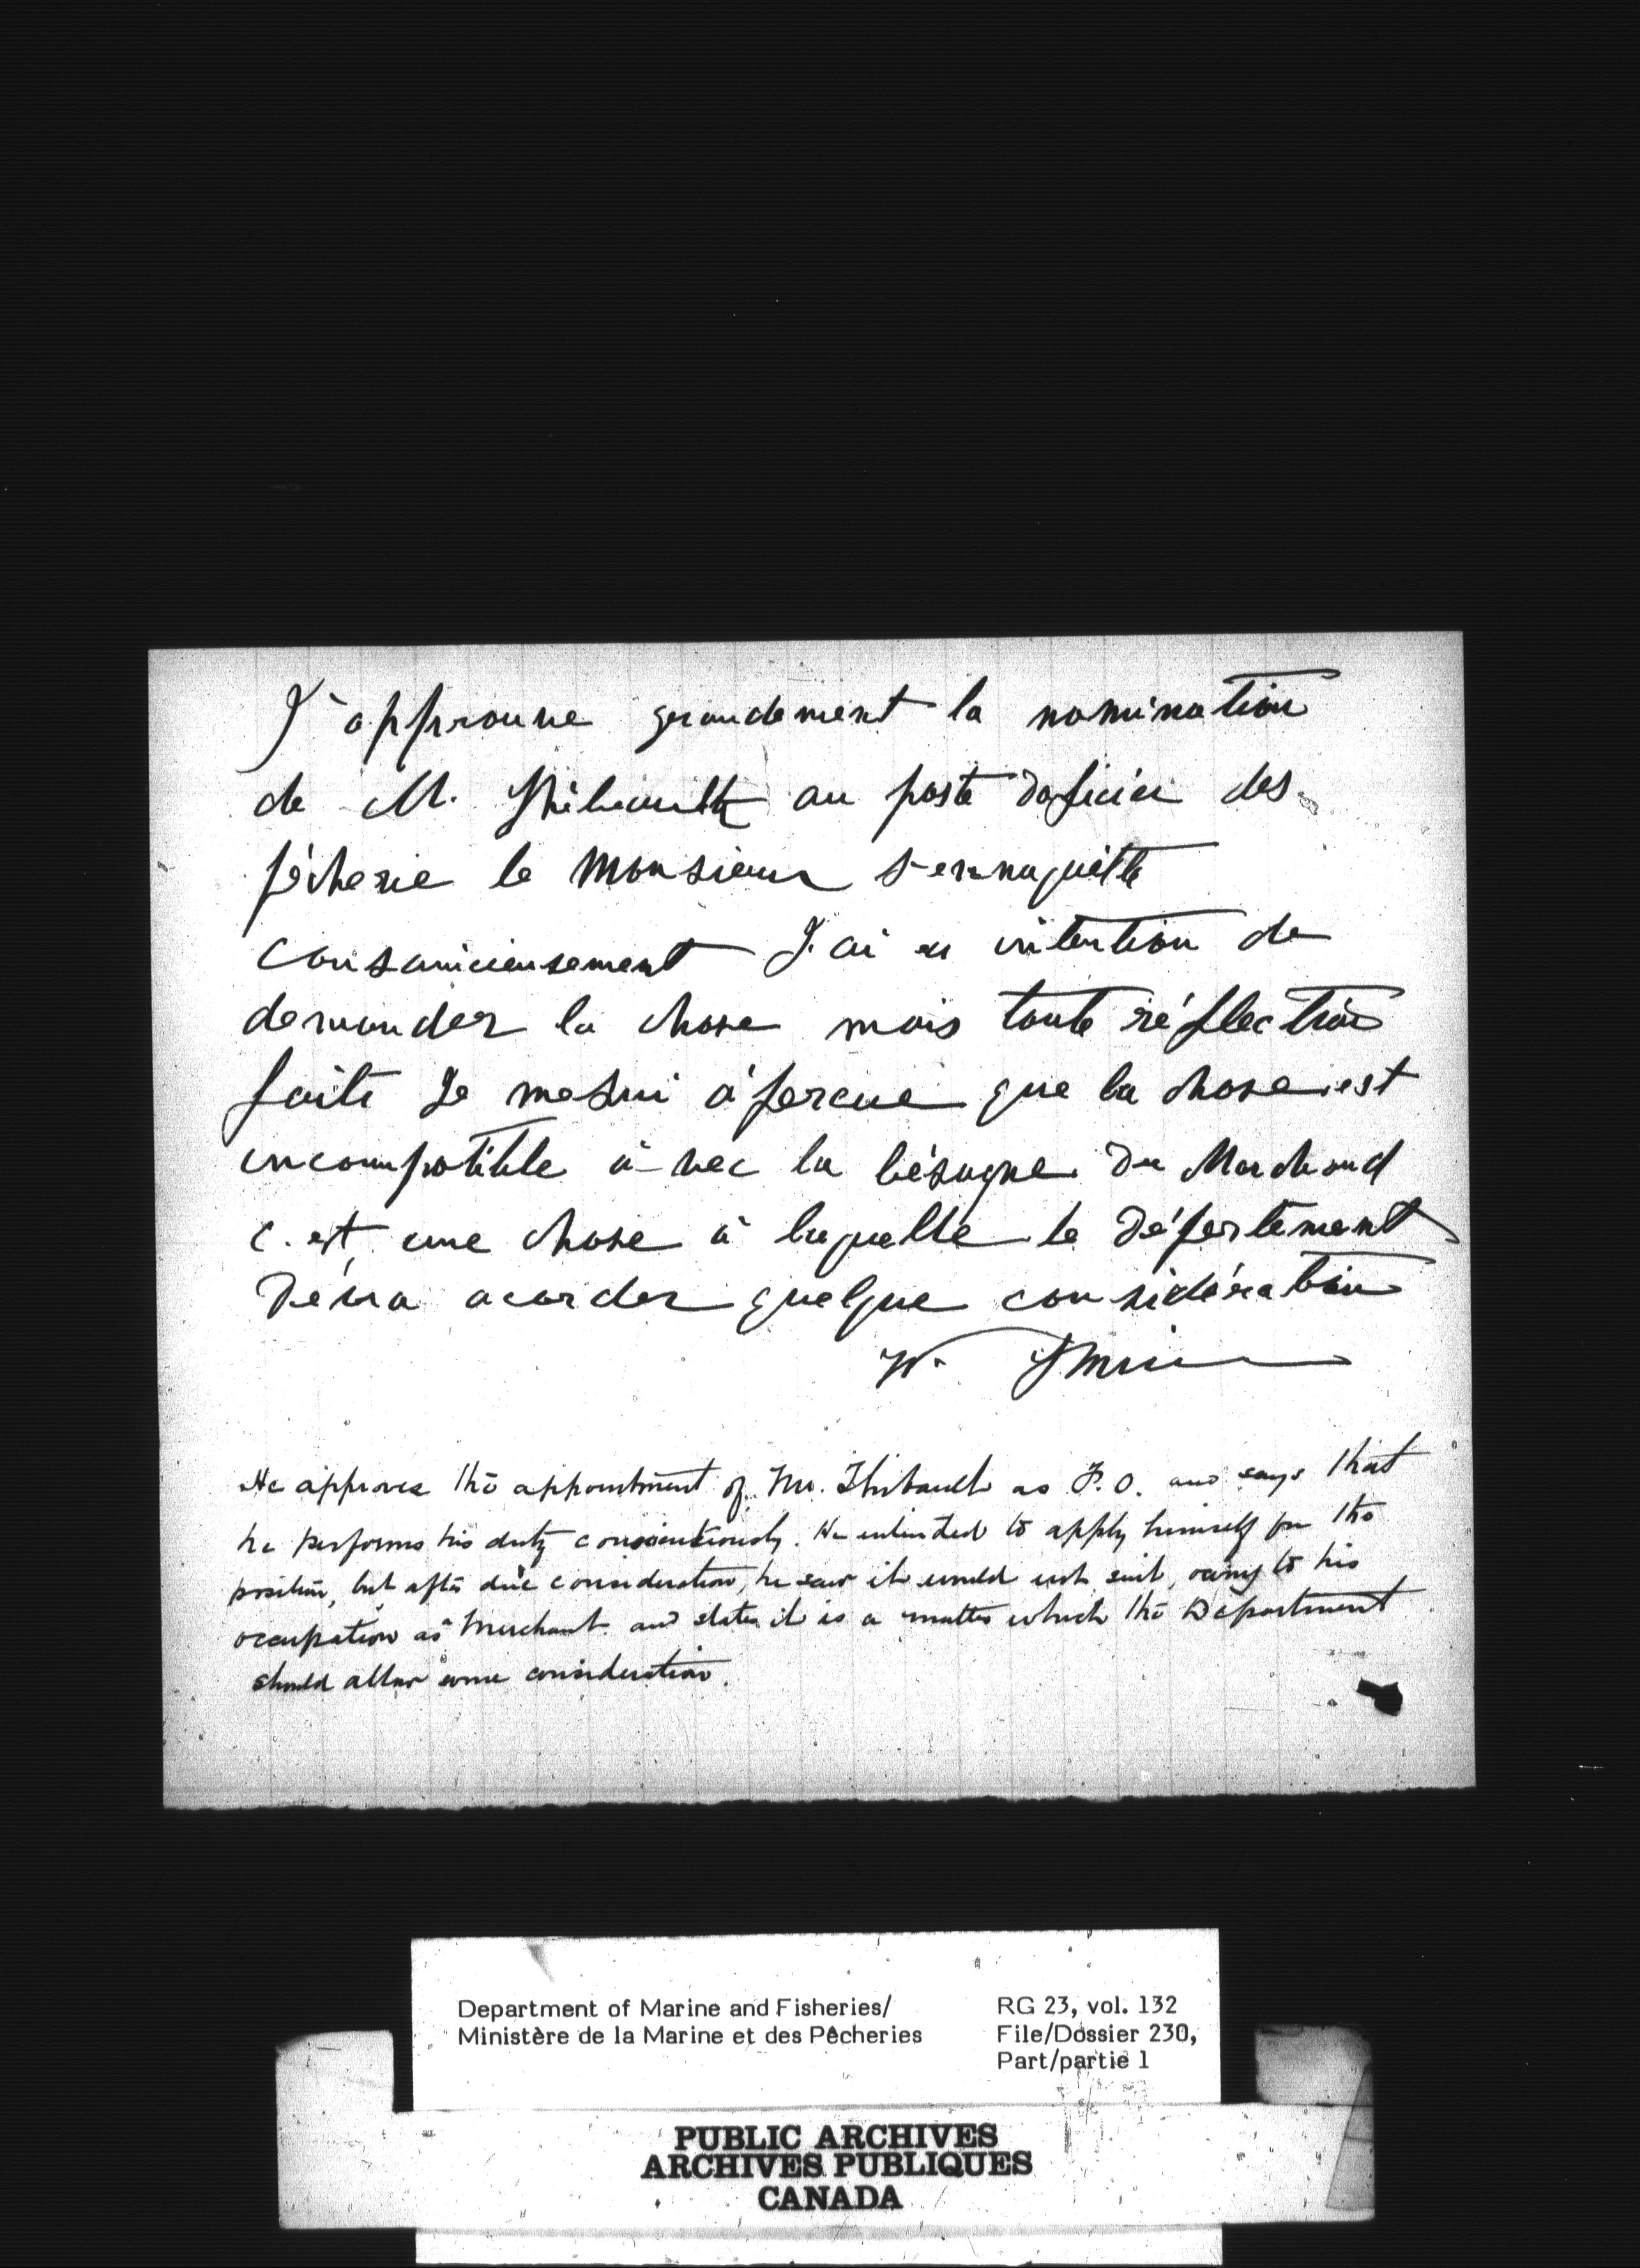 J'approuve grandement la nomination
de M. Thibault au poste doficier des
pêcherie le Monsieur s'ennaquitte
consanicieusement J'ai eu intention de
demander la chose mais toute réflection
faite Je me sui àpercue que la chose est
incompatible à-vec la bésogne du Marchand
c'est une chose à laquelle le départément
dévra acorder quelque considération
W.
He approves the appointment of Mr. Thibault as F.O. and says that
he performs his duty conscientiously. He intended to apply himself for the
position, but after due consideration, he saw it would not suit, owing to his
occupation as Merchant and states it is a matter which the Department
should allow some consideration.
Department of Marine and Fisheries/
Ministère de la Marine et des Pêcheries
RG 23, vol. 132
File/Dossier 230,
Part/partie 1
PUBLIC ARCHIVES
ARCHIVES PUBLIQUES
CANADA